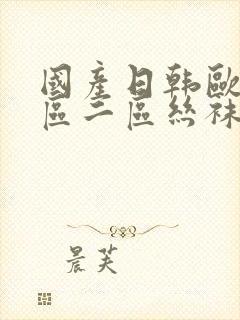 國產日韩歐
區二區丝袜
晨芙